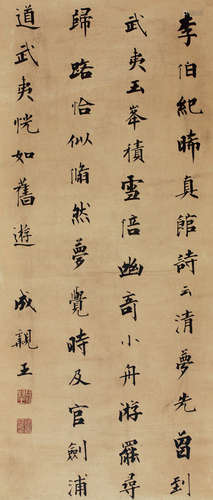 李伯紀晞真館詩云清夢先曾到
武夷玉峯積雪倍幽奇小舟游罷尋
歸路恰似翛然夢覺時及官劍浦
道武夷恍如舊遊
成親王